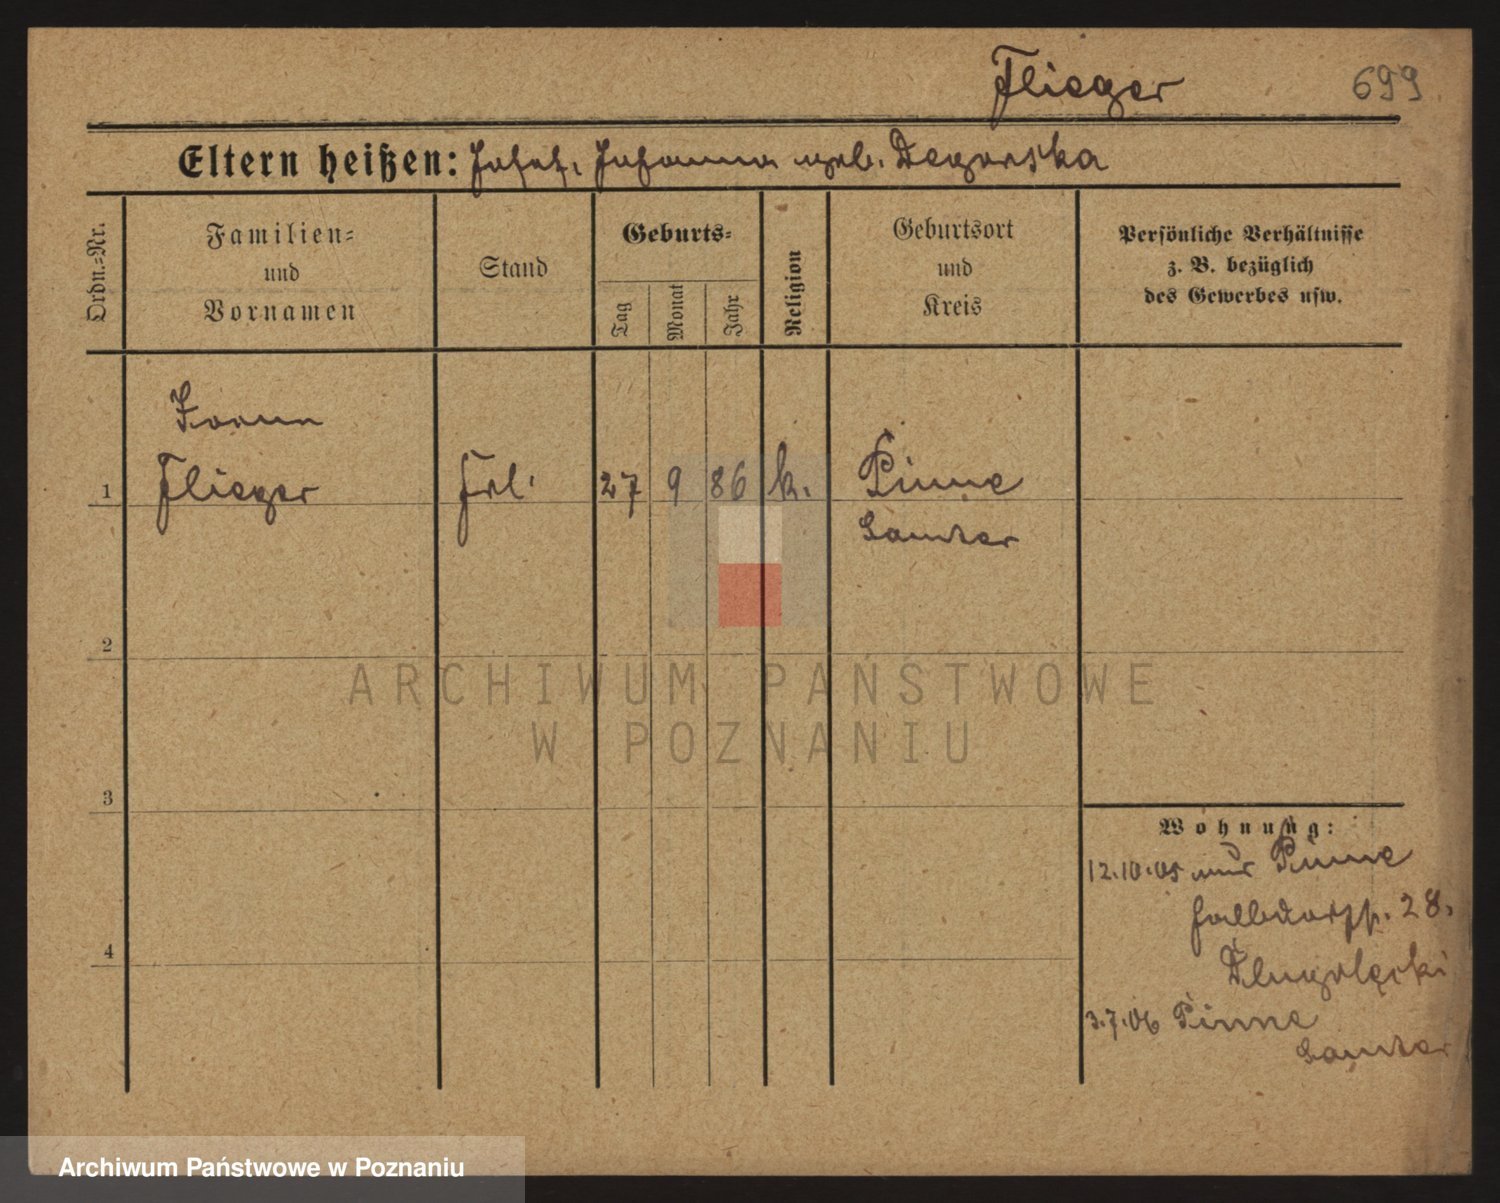 Flieger 699
Eltern heißen: Josef, Johanna geb. Degorska
Ordn.-Nr.
Familien-
und
Vornamen
Stand
Geburts-
Tag
Monat
Jahr
Religion
Geburtsort
und
Kreis
Persönliche Verhältnisse
z. B. bezüglich
des Gewerbes usw.
1
Flieger
Frl.
27 9 86 k. Pinne
Samter
2
3
4
Wohnung:
12.10.05 Pinne
Halbdorfstr. 28.
3.7.06 Pinne
Samter
ARCHIWUM PAŃSTWOWE
W POZNANIU
Archiwum Państwowe w Poznaniu